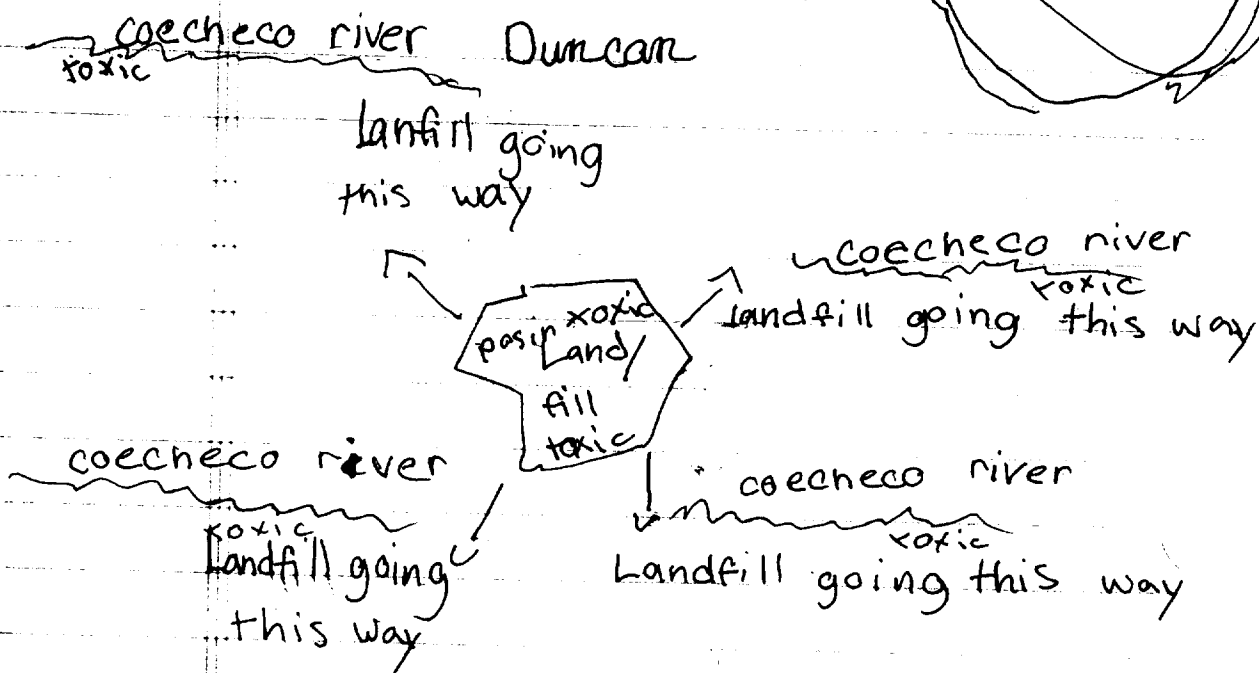 coecheco river Duncan
toxic
Lanfill going
this way
coecheco river
toxic
Landfill going this way
toxic
Land
fill
toxic
coecheco river
toxic
Landfill going
this way
coecheco river
toxic
Landfill going this way